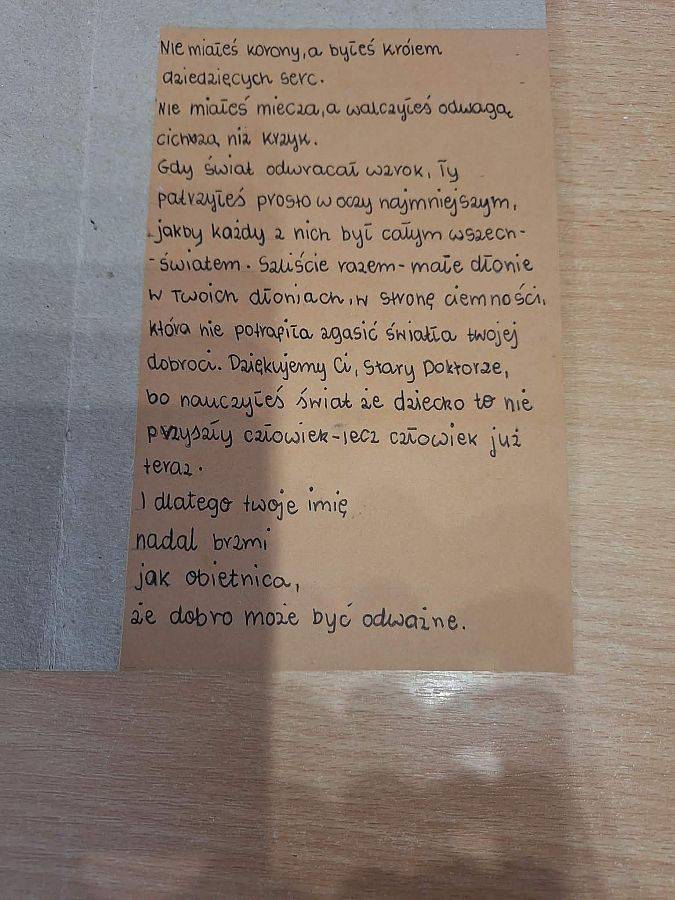 Nie miałeś korony, a byłeś królem
dziedzięcych serc.
Nie miałeś miecza, a walczyłeś odwagą
cichszą niż krzyk.
Gdy świat odwracał wzrok, Ty
patrzyłeś prosto w oczy najmniejszym,
jakby każdy z nich był całym wszech-
-światem. Szliście razem - małe dłonie
w Twoich dłoniach, w stronę ciemności,
która nie potrafiła zgasić światła twojej
dobroci. Dziękujemy Ci, Stary Doktorze,
bo nauczyłeś świat że dziecko to nie
przyszły człowiek - lecz człowiek już
teraz.
I dlatego twoje imię
nadal brzmi
jak obietnica,
że dobro może być odważne.